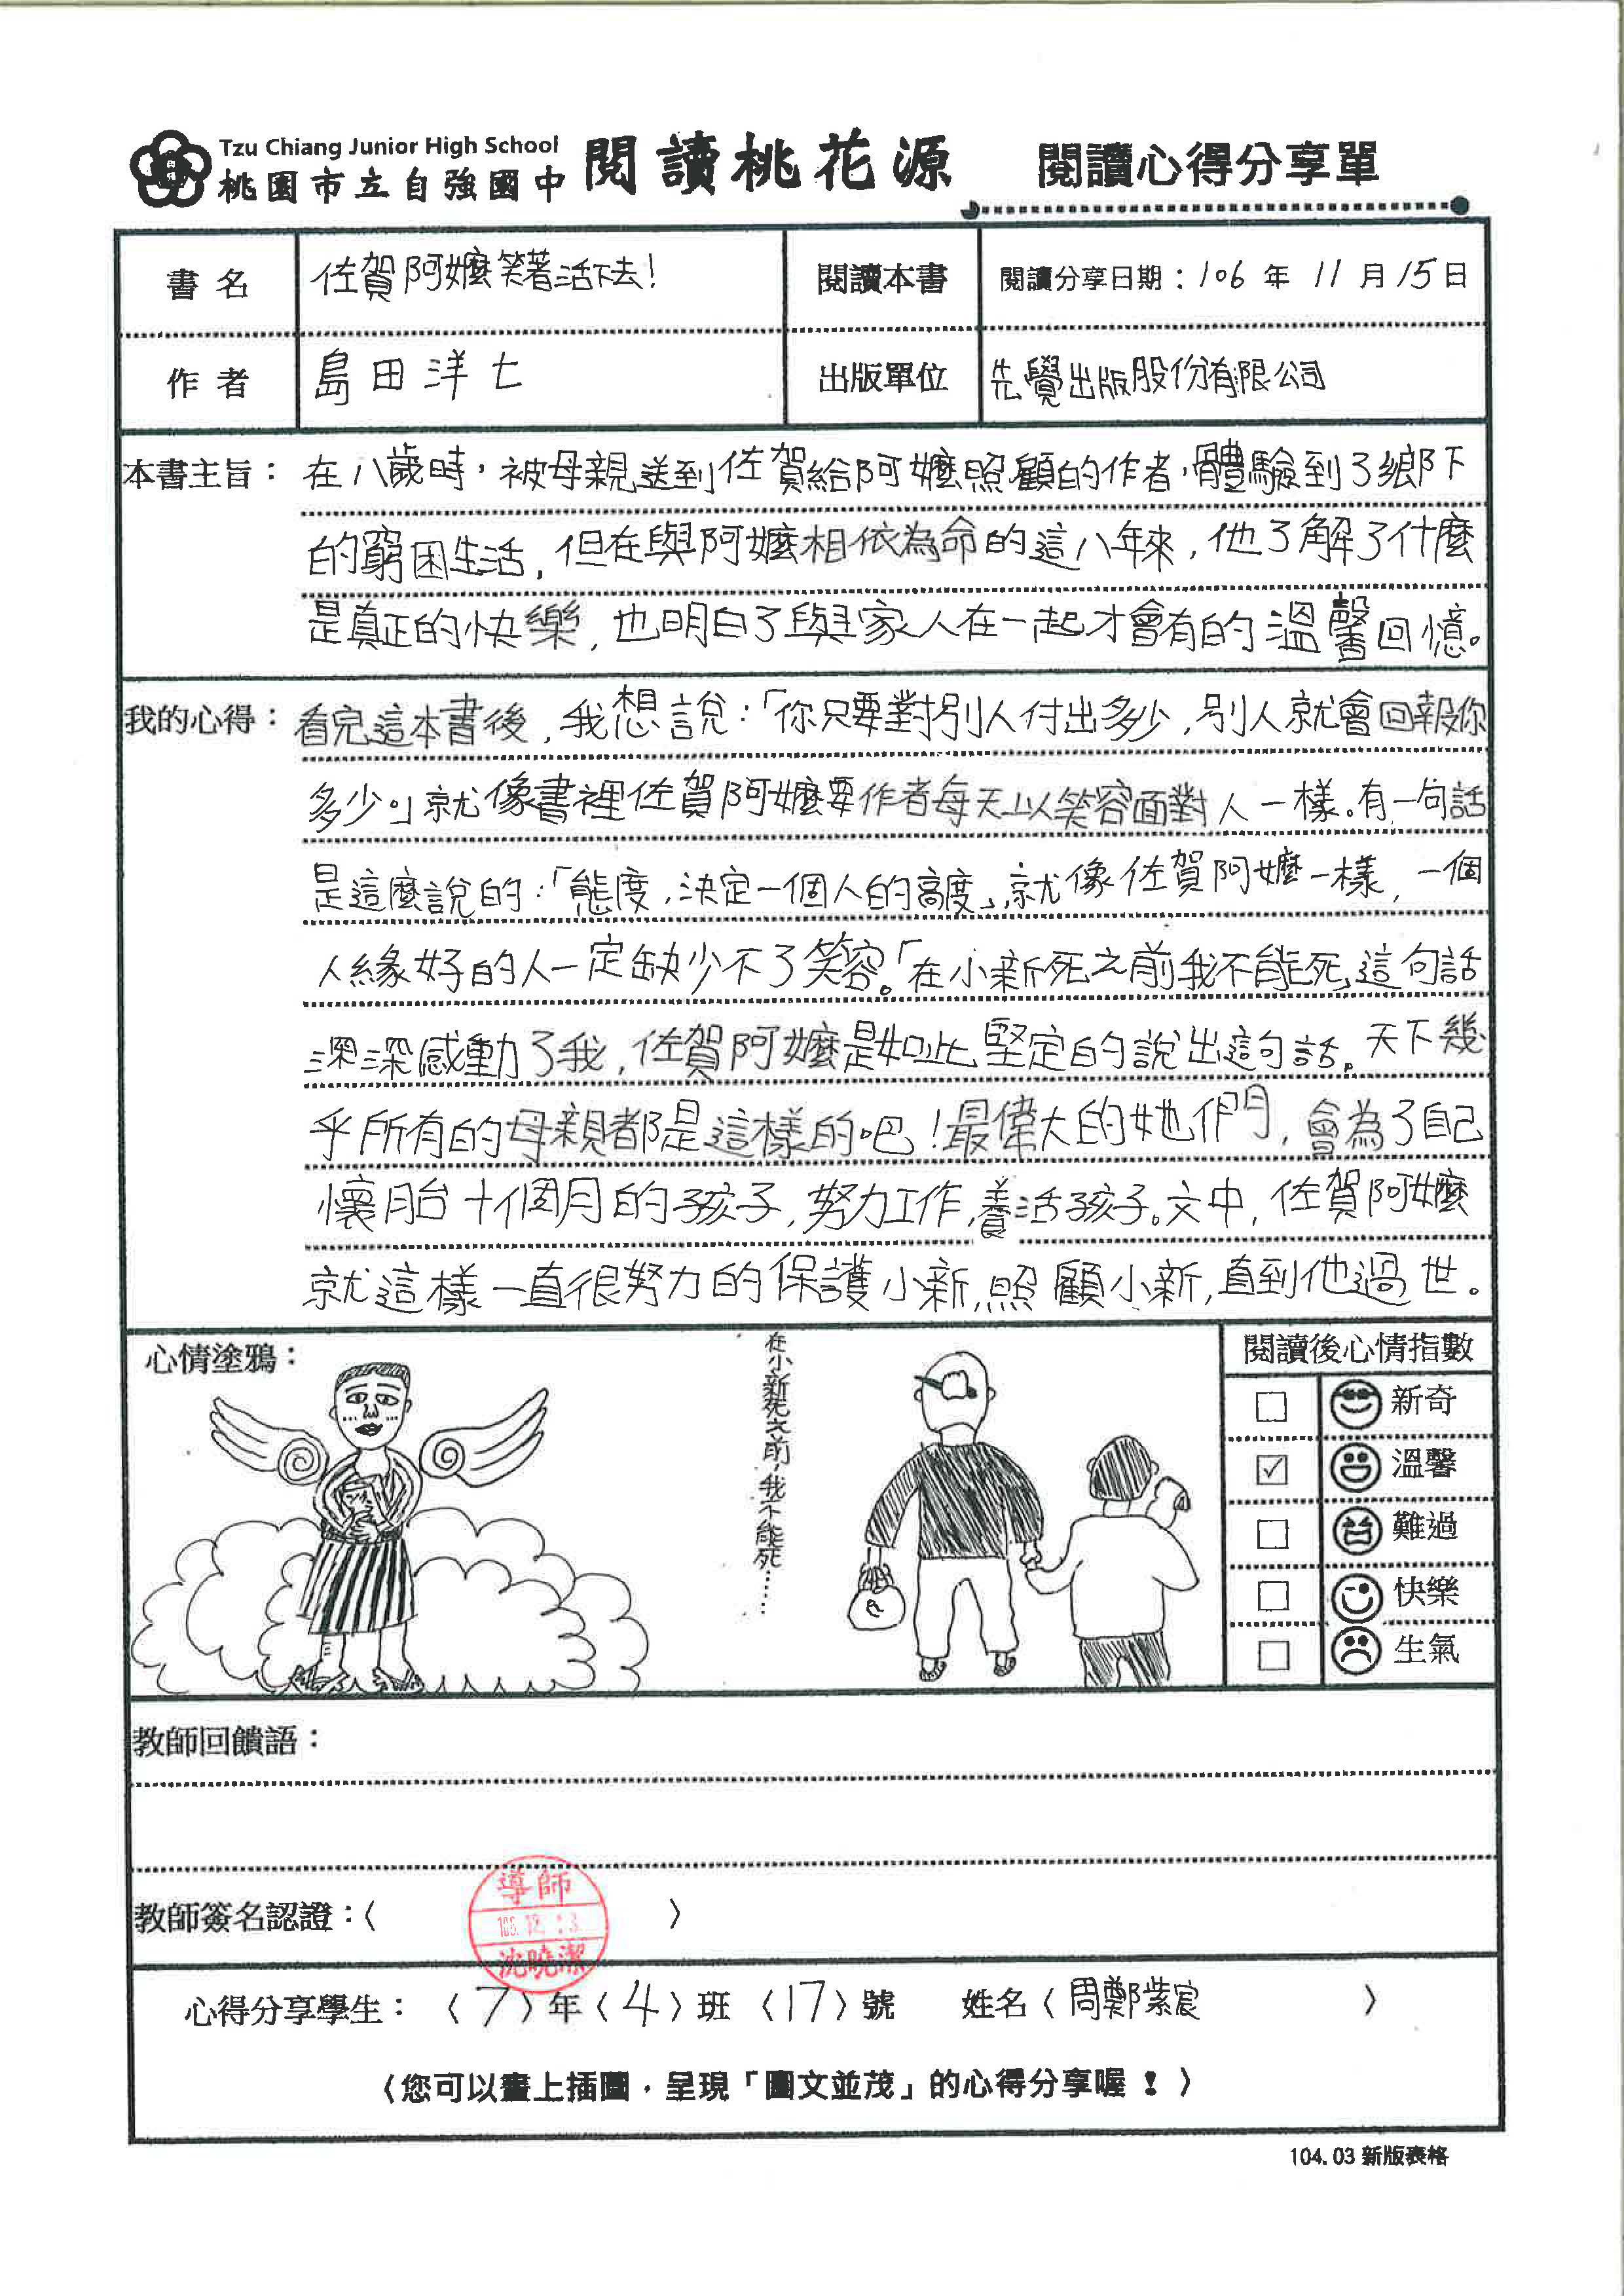 Tzu Chiang Junior High School
桃園市立自強國中 閱讀桃花源 閱讀心得分享單
書名 佐賀阿嬤笑著活下去! 閱讀本書 閱讀分享日期:106年11月15日
作者 島田洋七 出版單位 先覺出版股份有限公司
本書主旨:在八歲時,被母親送到佐賀給阿嬤照顧的作者,體驗到了鄉下
的窮困生活,但在與阿嬤相依為命的這八年來,他了解了什麼
是真正的快樂,也明白了與家人在一起才會有的溫馨回憶。
我的心得:看完這本書後,我想說:「你只要對別人付出多少,別人就會回報你
多少。」就像書裡佐賀阿嬤要作者每天以笑容面對人一樣。有一句話
是這麼說的:「態度,決定一個人的高度」,就像佐賀阿嬤一樣,一個
人緣好的人一定缺少不了笑容。「在小新死之前我不能死」這句話
深深感動了我,佐賀阿嬤是如此堅定的說出這句話。天下幾
乎所有的母親都是這樣的吧!最偉大的她們,會為了自己
懷胎十個月的孩子,努力工作,養活孩子。文中,佐賀阿嬤
就這樣一直很努力的保護小新,照顧小新,直到他過世。
心情塗鴉:
在小新死之前,我不能死……
閱讀後心情指數
新奇
☑ 溫馨
難過
快樂
生氣
教師回饋語:
教師簽名認證:〈 〉
導師
沈曉潔
心得分享學生: 〈7〉年〈4〉班〈17〉號 姓名〈周鄭紫宸 〉
〈您可以畫上插圖,呈現「圖文並茂」的心得分享喔!〉
104.03新版表格